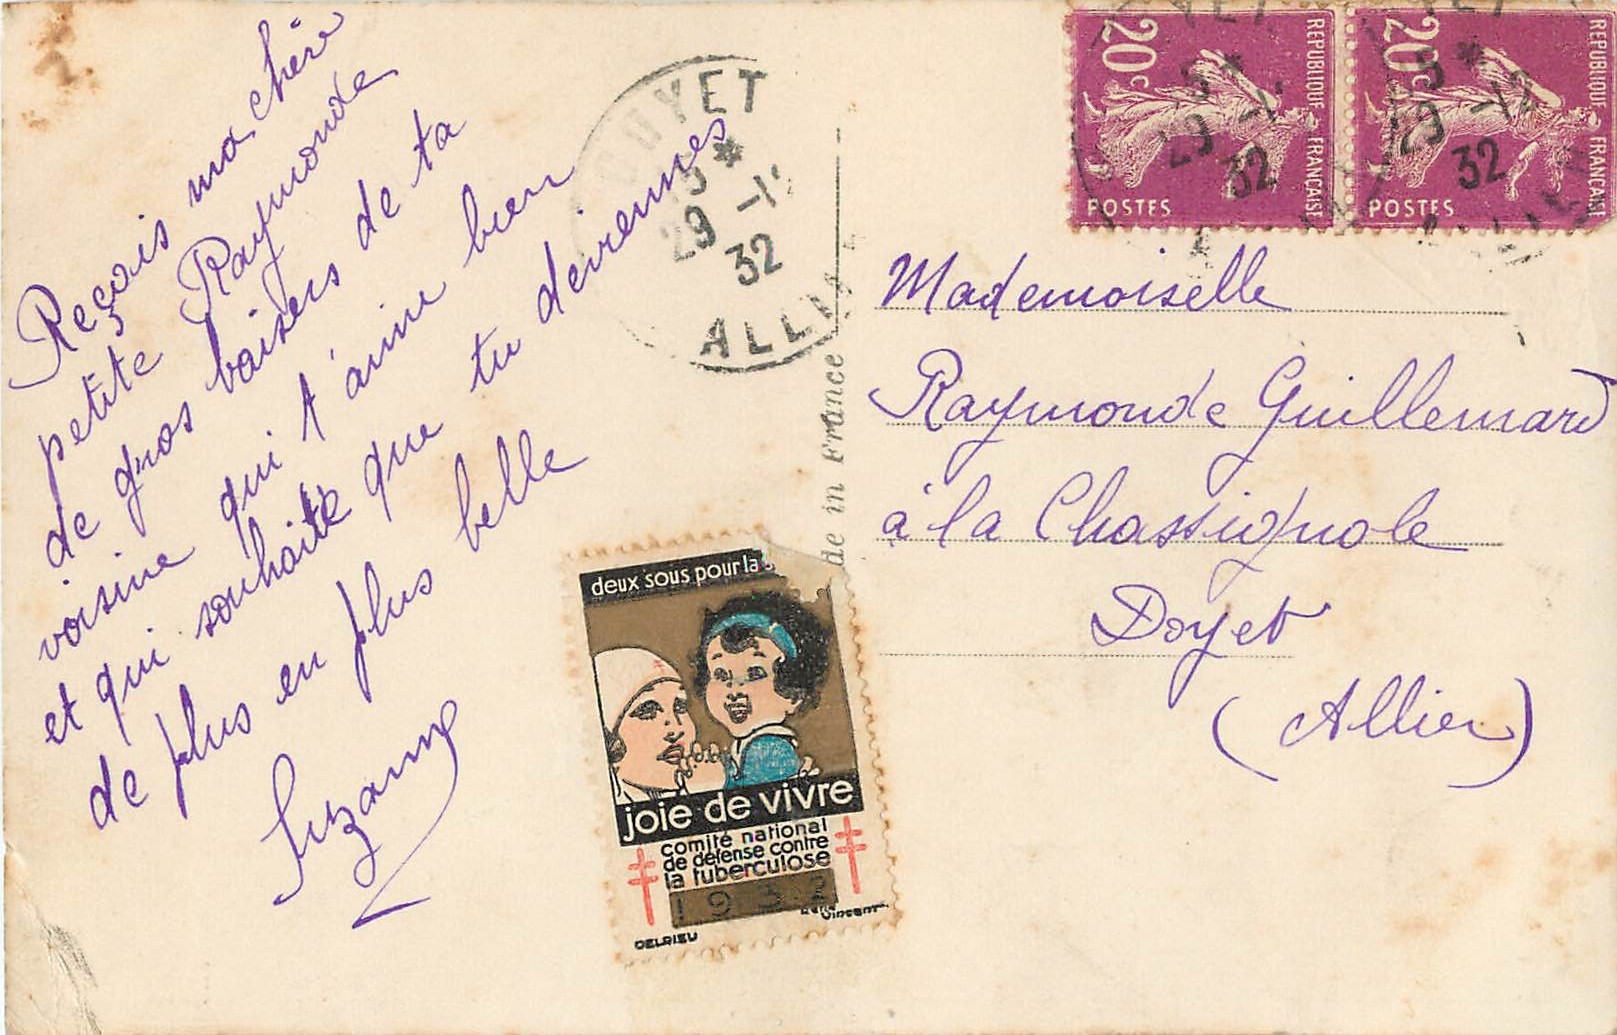 Reçois ma chère
petite Raymonde
de gros baisers de ta
voisine qui t'aime bien
et qui souhaite que tu deviennes
de plus en plus belle
Suzanne
DOYET
15 *
29 -12
32
ALLIER
de in France
20c
REPUBLIQUE FRANÇAISE
POSTES
20c
REPUBLIQUE FRANÇAISE
POSTES
29 -12
32
29 -12
32
Mademoiselle
Raymonde Guillemard
à la Chassignole
Doyet
(Allier)
deux sous pour la
joie de vivre
comité national
de défense contre
la tuberculose
1932
René Vincent
DELRIEU